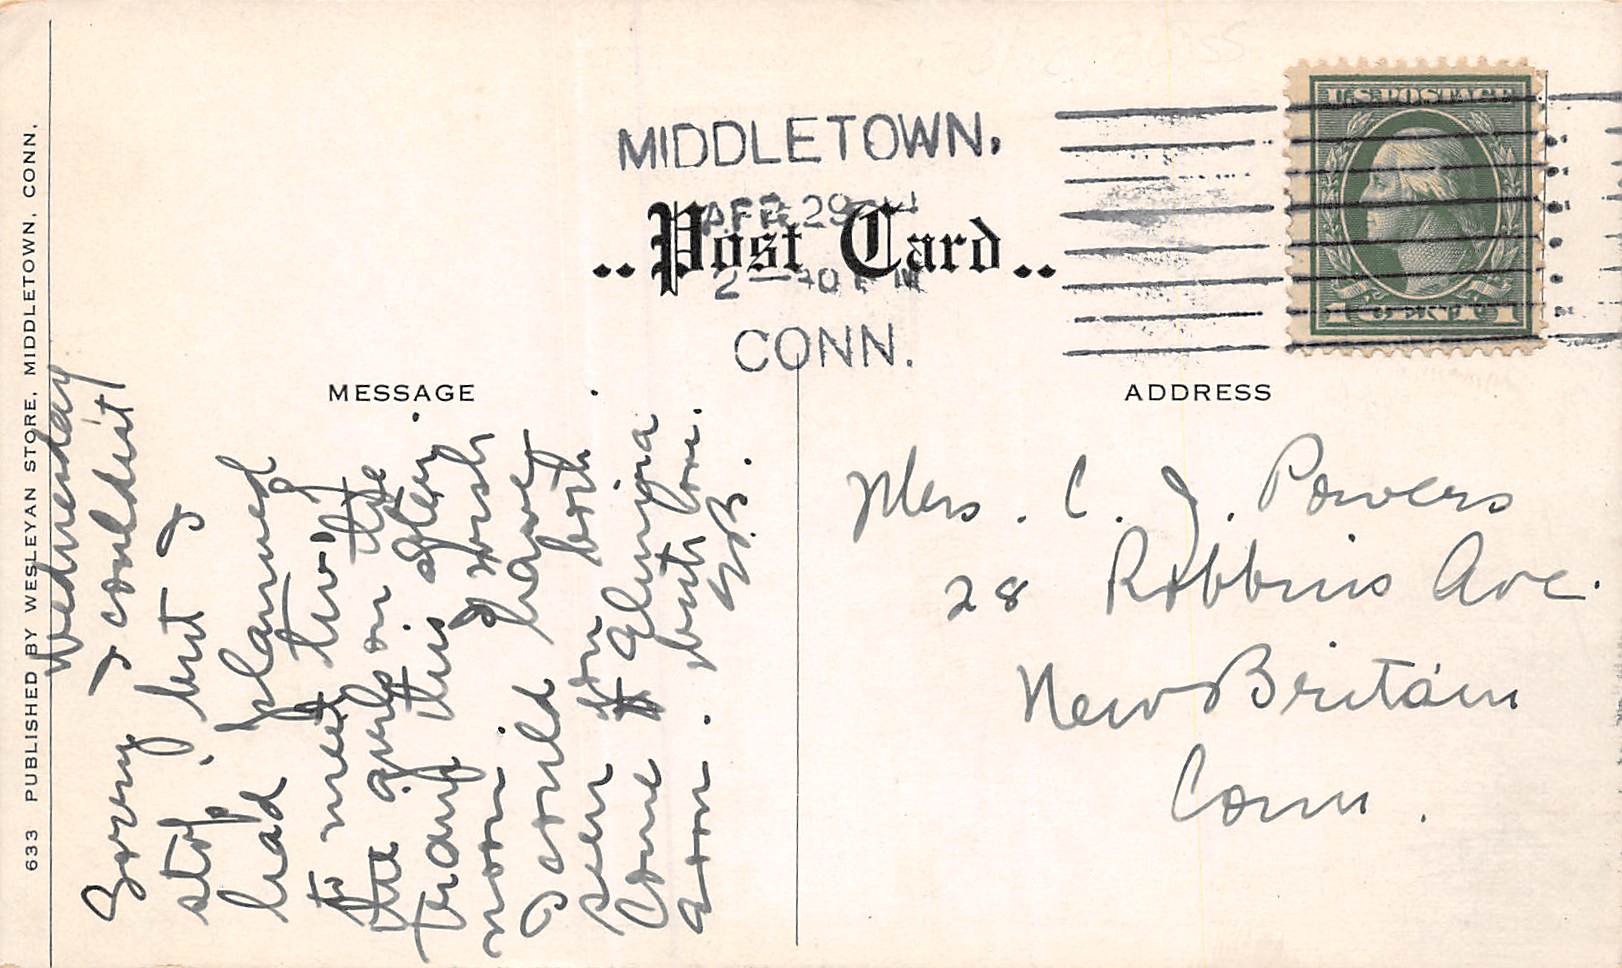 633 PUBLISHED BY WESLEYAN STORE, MIDDLETOWN, CONN.
MIDDLETOWN,
APR 29
2 — PM
CONN.
Post Card
U.S. POSTAGE
1 1
MESSAGE
ADDRESS
Wednesday
Sorry I couldn't
stop, but I
had planned
to meet two of
the girls on the
tramp this after
noon. I wish
I could have
seen you both
Come # Elmira
soon. just love.
B.
Mrs. C. J. Powers
28 Robbins Ave.
New Britain
Conn.